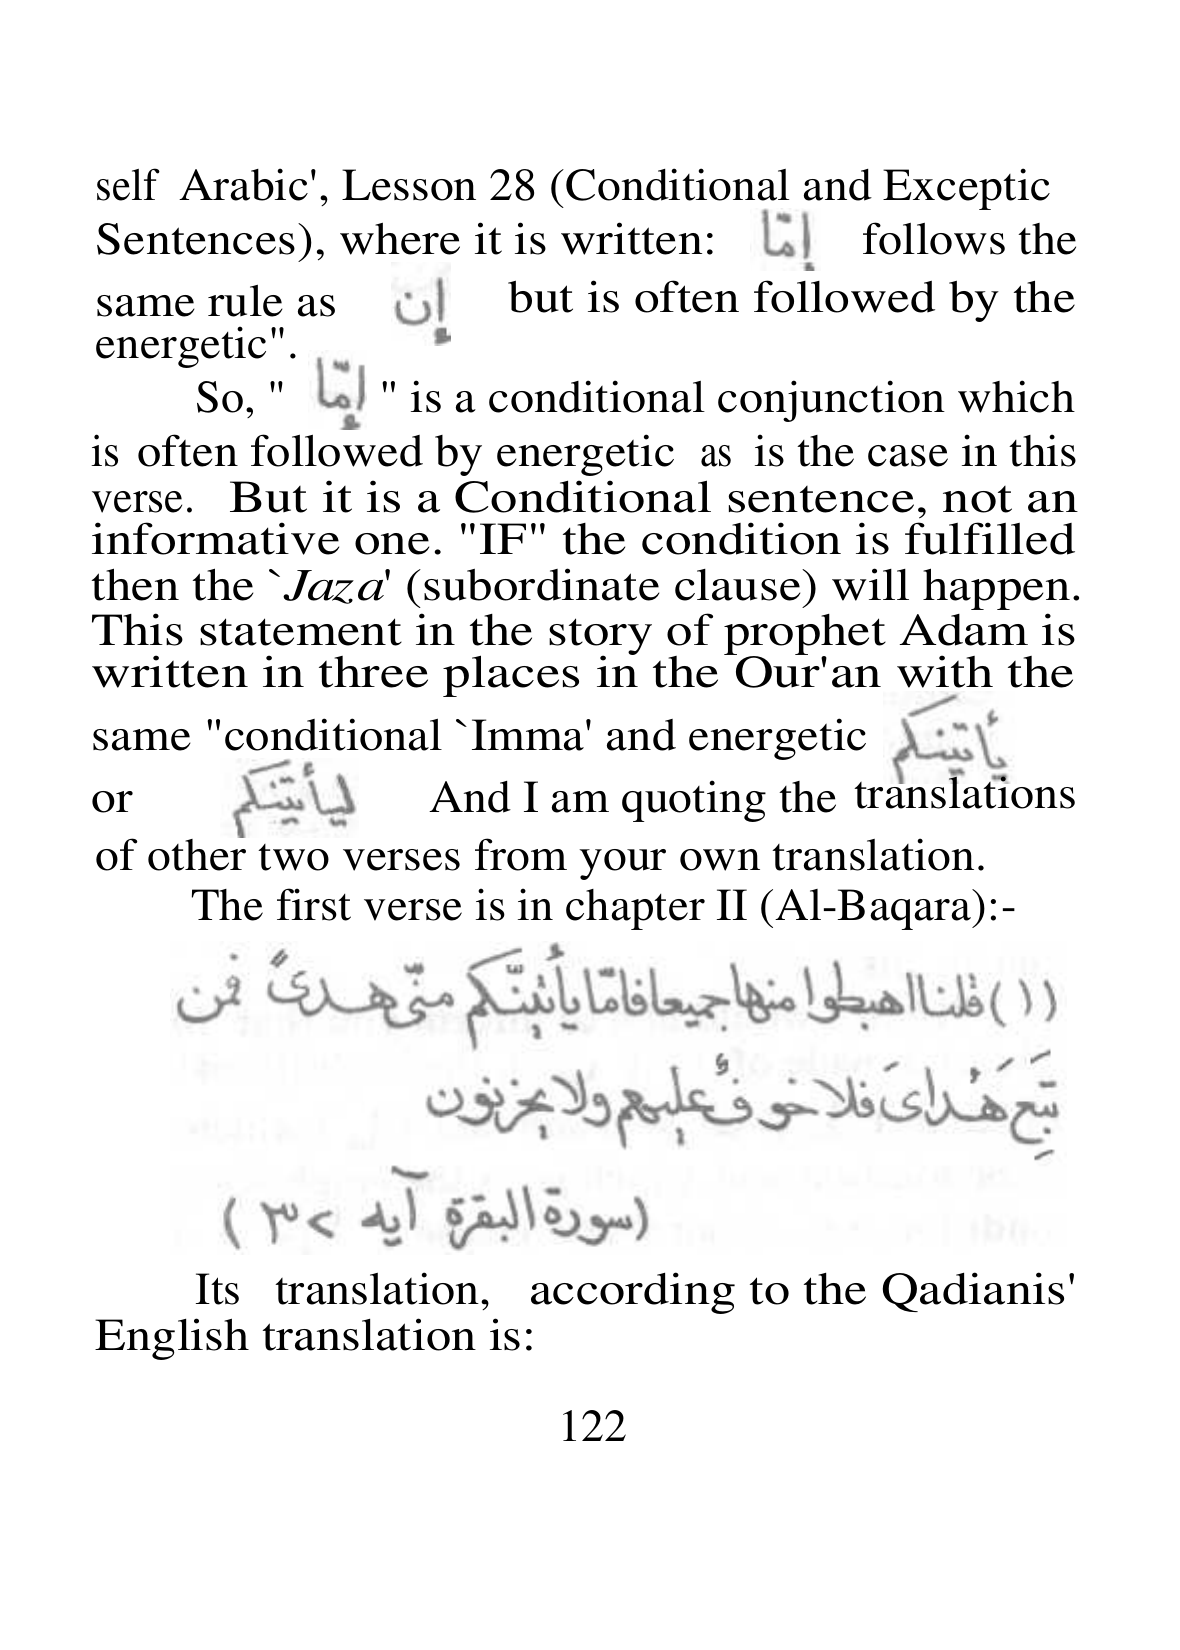 self Arabic', Lesson 28 (Conditional and Exceptic
Sentences), where it is written: إمّا follows the
same rule as إن but is often followed by the
energetic".
So, " إمّا " is a conditional conjunction which
is often followed by energetic as is the case in this
verse. But it is a Conditional sentence, not an
informative one. "IF" the condition is fulfilled
then the `Jaza' (subordinate clause) will happen.
This statement in the story of prophet Adam is
written in three places in the Our'an with the
same "conditional `Imma' and energetic يأتينكم
or ليأتينكم And I am quoting the translations
of other two verses from your own translation.
The first verse is in chapter II (Al-Baqara):-
(١) قلنا اهبطوا منها جميعا فامّا يأتينّكم منّي هدىً فمن
تبِعَ هُدايَ فلا خوفٌ عليهم ولا يحزنون
(سورة البقرة آيه ٣٧)
Its translation, according to the Qadianis'
English translation is:
122